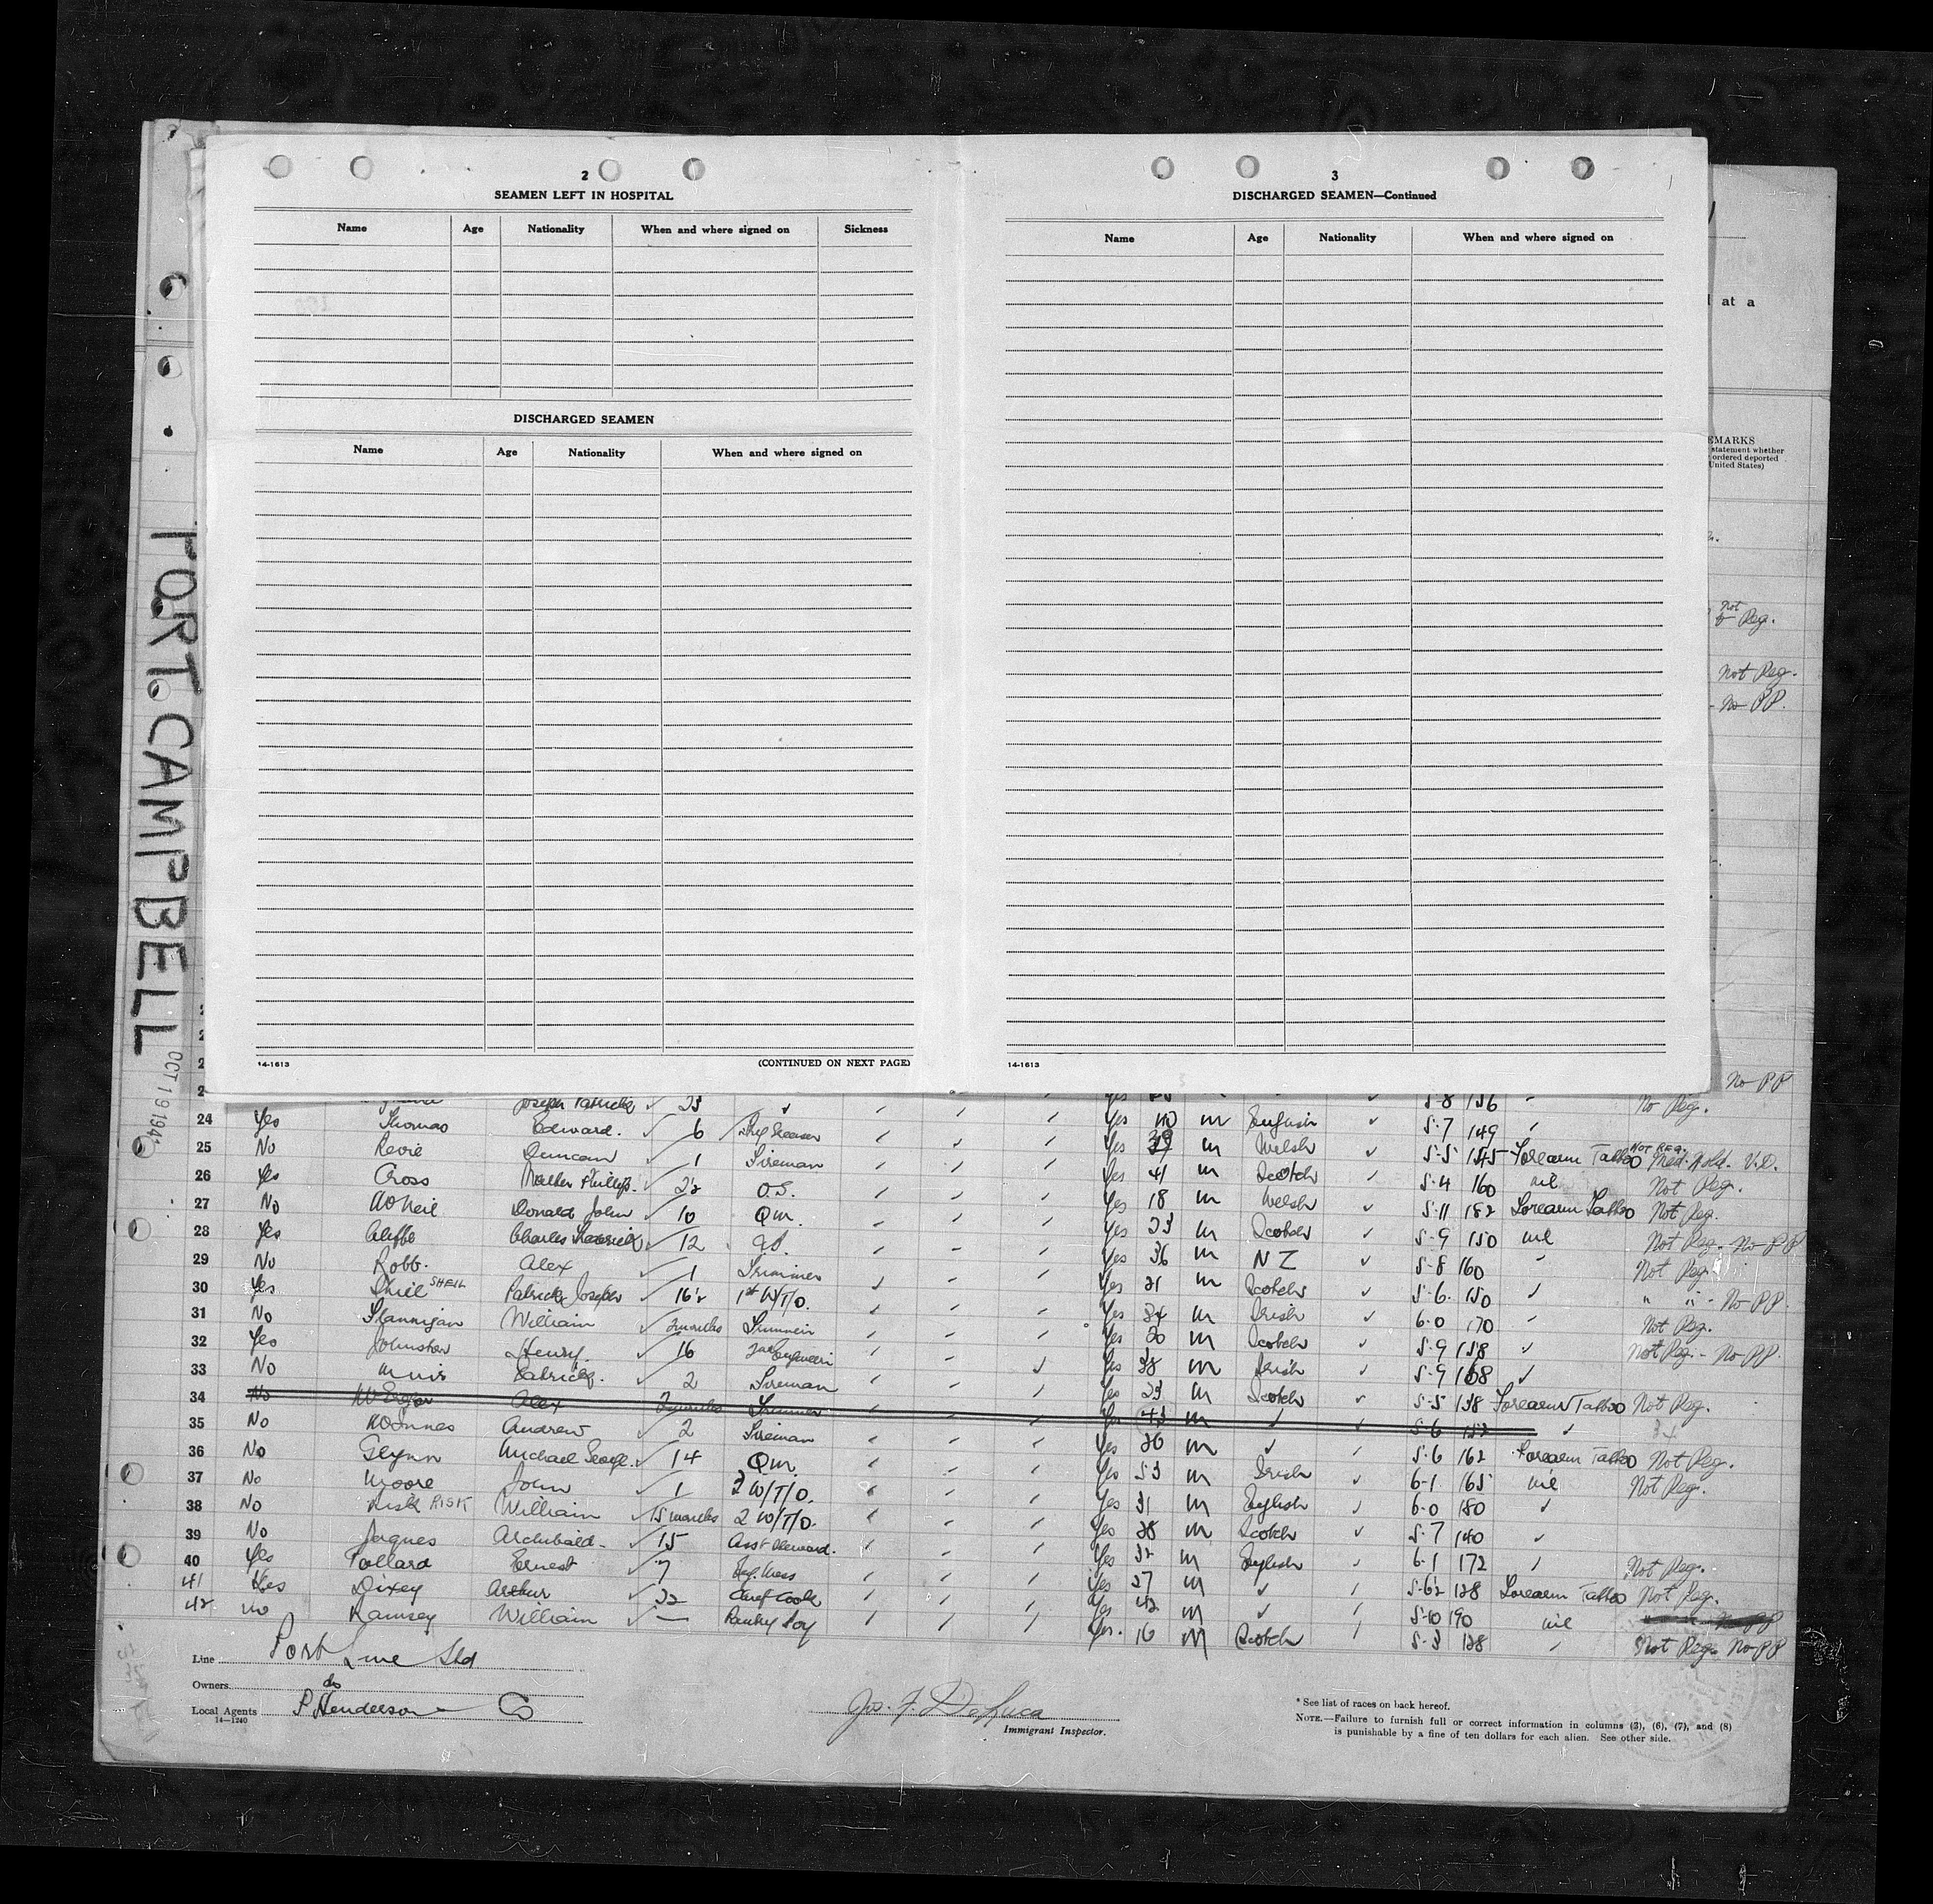 2
SEAMEN LEFT IN HOSPITAL
Name Age Nationality When and where signed on Sickness
DISCHARGED SEAMEN
Name Age Nationality When and where signed on
14-1613 (CONTINUED ON NEXT PAGE)
3
DISCHARGED SEAMEN—Continued
Name Age Nationality When and where signed on
14-1613
at a
EMARKS
statement whether
ordered deported
United States)
not
Reg.
Not Reg.
- No PP.
No PP
PORT CAMPBELL
OCT 19 194
Joseph Patrick 23 Yes 5-8 136 No Reg.
24 Yes Thomas Edward. 6 Yes 40 m English 5-7 149
25 No Revie Duncan 1 Fireman Yes 39 m Welsh 5-5 145 Forearm Tattoo NOT REG. Med. Hold. V.D.
26 Yes Cross Walter Phillip. 2½ O.S. Yes 41 m Scotch 5-4 160 nil Not Reg.
27 No McNeil Donald John 10 Qm. Yes 18 m Welsh 5-11 182 Forearm Tattoo Not Reg.
28 Yes Cliffe Charles 12 Yes 33 m Scotch 5-9 150 nil Not Reg. - No PP
29 No Robb. Alex 1 Trimmer Yes 36 m NZ 5-8 160 Not Reg.
30 Yes Shiel SHEIL Patrick Joseph 16½ 1st W/T/O. Yes 21 m Scotch 5-6 150 " " - No PP.
31 No Flannigan William 3 months Trimmer Yes 34 m Irish 6-0 170 Not Reg.
32 Yes Johnston Henry. 16 2nd Engineer Yes 20 m Scotch 5-9 158 Not Reg. - No PP.
33 No Muir Patrick. 2 Fireman Yes 38 m Irish 5-9 168
34 No Alex months Trimmer Yes 23 m Scotch 5-5 138 Forearm Tattoo Not Reg.
35 No McInnes Andrew 2 Fireman Yes 43 m 5-6 152
36 No Glynn Michael 14 Qm. Yes 26 m 5-6 162 Forearm Tattoo Not Reg.
37 No Moore John 1 3 W/T/O. Yes 53 m Irish 6-1 165 nil Not Reg.
38 No Risk RISK William 15 months 2 W/T/O. Yes 31 m English 6-0 180
39 No Jaques Archibald 15 Asst Steward. Yes 28 m Scotch 5-7 140
40 Yes Pollard Ernest 7 Yes 32 m English 6-1 172 Not Reg.
41 Yes Dixey Arthur 22 Chief Cook Yes 27 m 5-6½ 128 Forearm Tattoo Not Reg.
42 No Ramsey William — Pantry Boy Yes 42 m 5-10 190 nil
Yes. 16 m Scotch 5-3 128 Not Reg. No PP
Line Port Line Ltd
Owners do
Local Agents P Henderson Co
14—1240
Jos. F. DeLuca
Immigrant Inspector.
* See list of races on back hereof.
NOTE.—Failure to furnish full or correct information in columns (3), (6), (7), and (8)
is punishable by a fine of ten dollars for each alien. See other side.